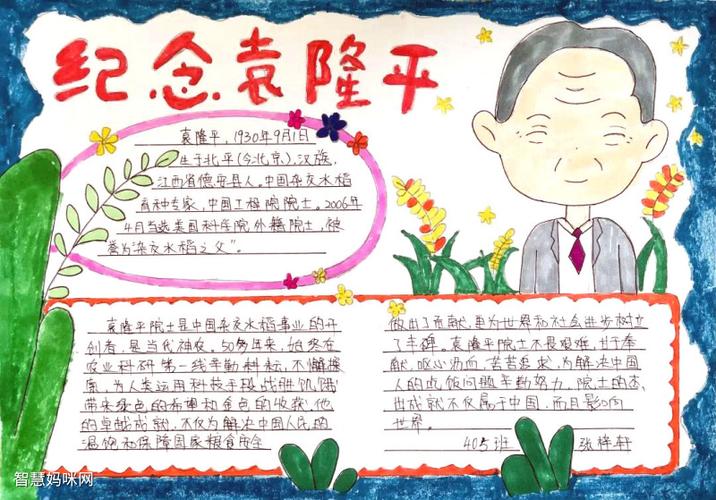 纪念袁隆平
袁隆平，1930年9月1日
生于北平(今北京)，汉族，
江西省德安县人。中国杂交水稻
育种专家，中国工程院院士。2006年
4月当选美国科学院外籍院士，被
誉为"杂交水稻之父"。
袁隆平院士是中国杂交水稻事业的开
创者，是当代神农。50多年来，始终在
农业科研第一线辛勤耕耘，不懈探
索，为人类运用科技手段战胜饥饿
带来绿色的希望和金色的收获。他
的卓越成就，不仅为解决中国人民的
温饱和保障国家粮食安全
做出了贡献，更为世界和社会进步树立
了丰碑。袁隆平院士不畏艰难，甘于奉
献，呕心沥血，苦苦追求，为解决中国
人的吃饭问题辛勤努力，院士的杰
出成就不仅属于中国，而且影响
世界。
405班 张梓轩
智慧妈咪网